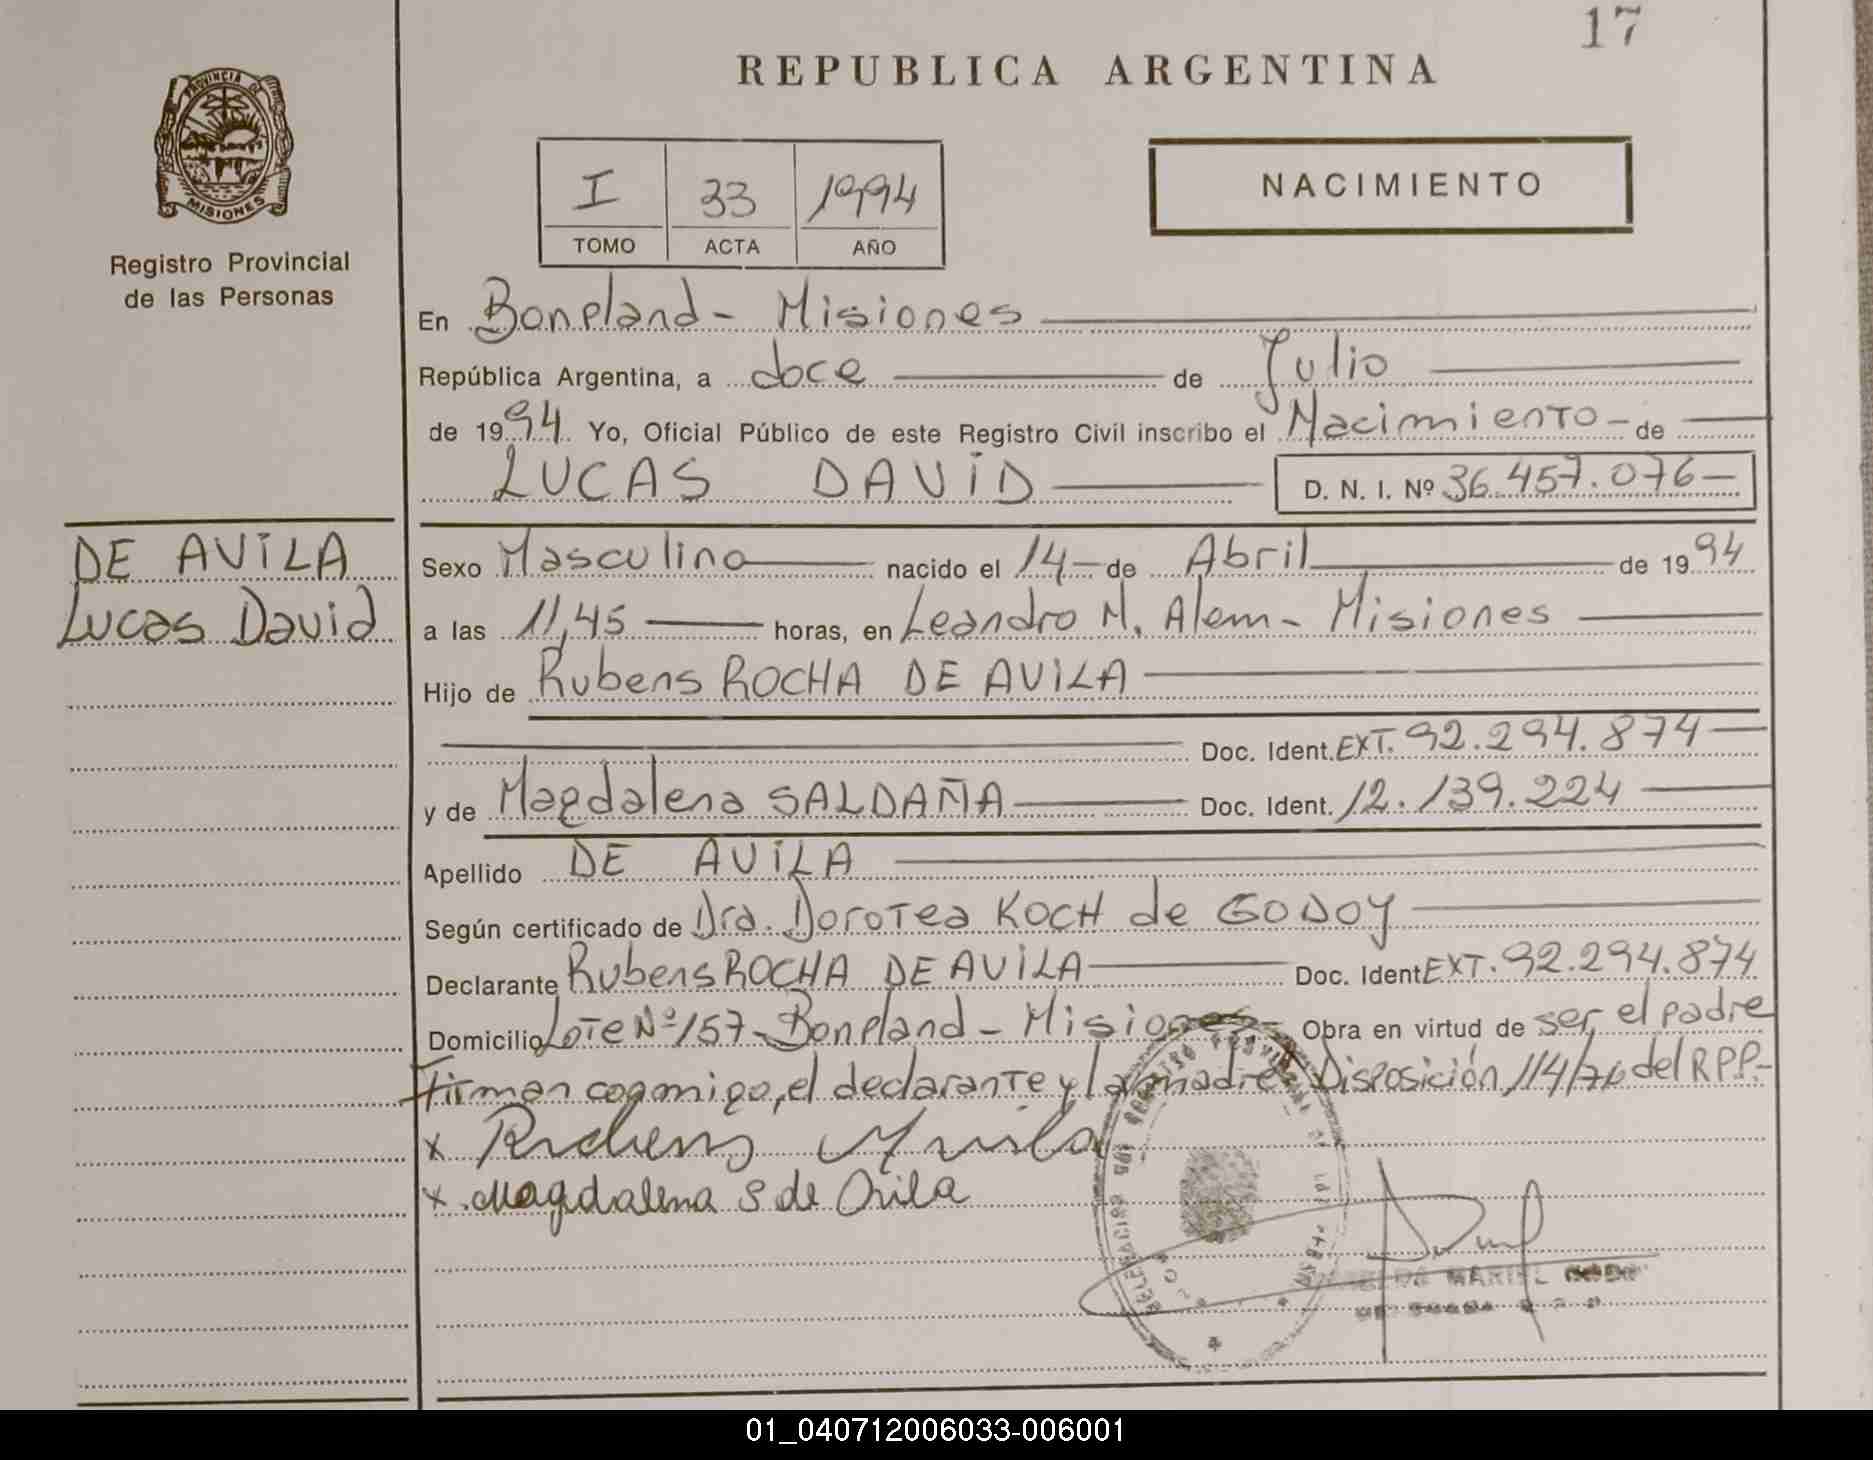 17
REPUBLICA ARGENTINA
PROVINCIA DE
MISIONES
Registro Provincial
de las Personas
I 33 1994
TOMO ACTA AÑO
NACIMIENTO
En Bonpland - Misiones
República Argentina, a doce de Julio
de 1994. Yo, Oficial Público de este Registro Civil inscribo el Nacimiento - de
LUCAS DAVID D. N. I. Nº 36.457.076-
DE AVILA
Lucas David
Sexo Masculino nacido el 14 - de Abril de 1994
a las 11,45 horas, en Leandro N. Alem - Misiones
Hijo de Rubens ROCHA DE AVILA
Doc. Ident. EXT. 92.294.874
y de Magdalena SALDAÑA Doc. Ident. 12.139.224
Apellido DE AVILA
Según certificado de Dra. Dorotea KOCH de GODOY
Declarante Rubens ROCHA DE AVILA Doc. Ident EXT. 92.294.874
Domicilio Lote Nº 157 - Bonpland - Misiones Obra en virtud de ser el padre
Firman conmigo, el declarante y la madre Disposición 114/76 del RPP.-
x Rubens Avila
x Magdalena S de Avila
MARIEL
01_040712006033-006001